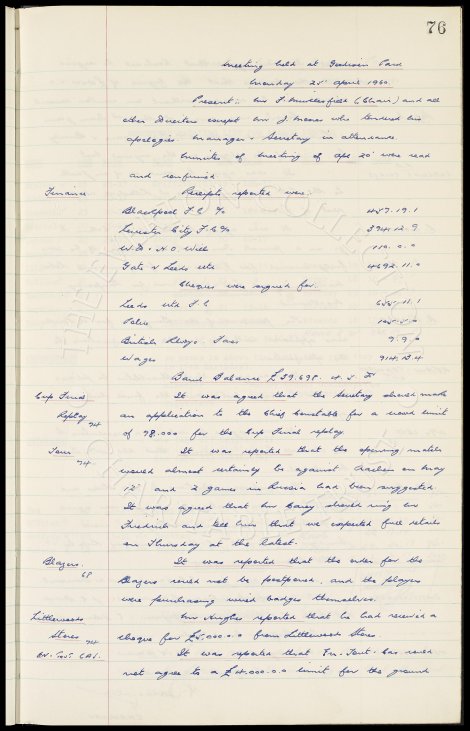 76
Meeting held at Goodison Park
Monday 25' April 1960.
Present:- Mr F. Micklesfield (Chair) and all
other Directors except Mr J. Moores who tendered his
apologies. Manager & Secretary in attendance.
Minutes of Meeting of Apl 20' were read
and confirmed
Finance. Receipts reported were:-
Blackpool F.C. %
Leicester City F.C. %
W.D. & H.O. Wills 110. 0. 0
Gate v Leeds Utd 4692. 11. 0
Cheques were signed for.
Leeds Utd F.C. 11. 1
Police
British Rlwys. Fares 9. 9. 0
Wages 914. 13. 4
Bank Balance £39.698. 4. 5
Cup Final It was agreed that the Secretary should make
Replay 74 an application to the Chief Constable for a crowd limit
of 78.000 for the Cup Final replay.
Tour 74 It was reported that the opening match
would almost certainly be against Aachen on May
12' and 2 games in Russia had been suggested.
It was agreed that Mr Carey should ring Mr
Friedrich and tell him that we expected full details
on Thursday at the latest.
Blazers. 68 It was reported that the order for the
Blazers could not be postponed, and the players
were purchasing wired badges themselves.
Littlewoods Mr Hughes reported that he had received a
Stores 74 cheque for £5.000.0.0 from Littlewoods Stores.
It was reported that could
not agree to a limit for the ground